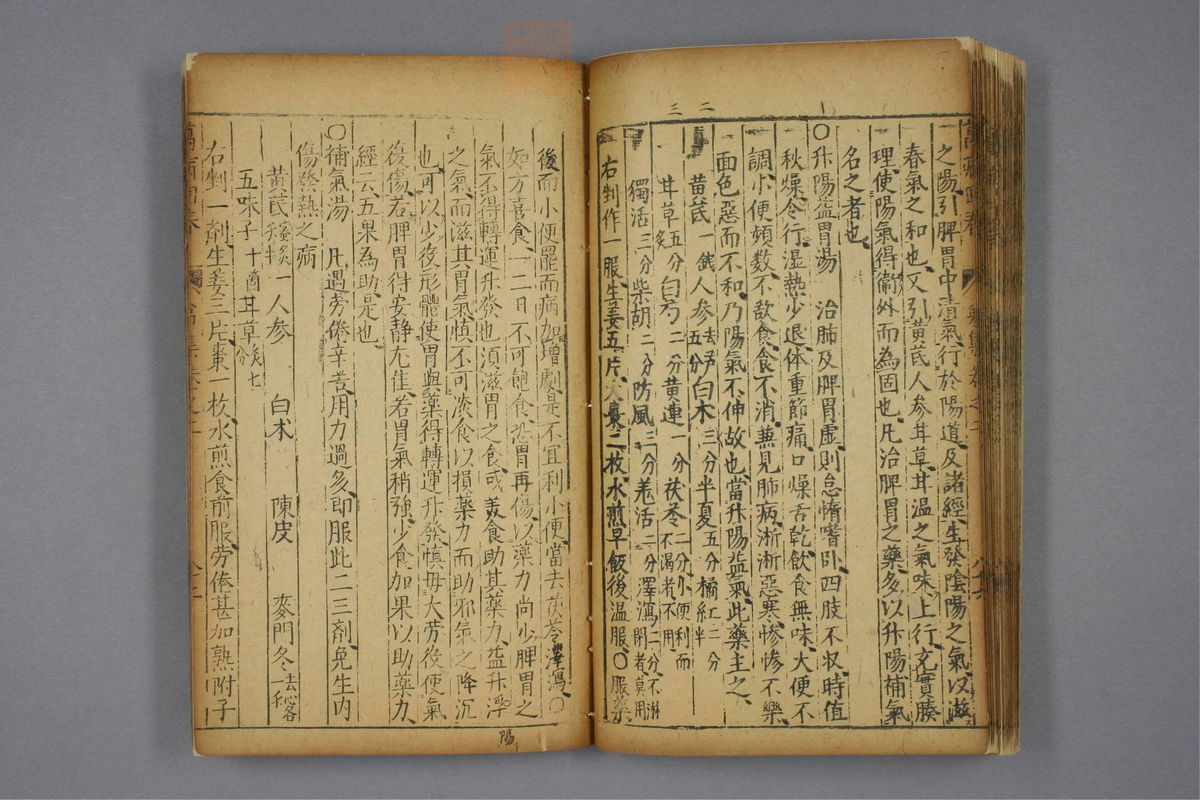 之陽引脾胃中清氣行於陽道及諸經生發陰陽之氣以滋
春氣之和也又引黃芪人參甘草甘溫之氣味上行充實腠
理使陽氣得衛外而為固也凡治脾胃之藥多以升陽補氣
名之者也
○升陽益胃湯 治肺及脾胃虛則怠惰嗜卧四肢不收時值
秋燥令行湿熱少退体重節痛口燥舌乾飲食無味大便不
調小便頻數不欲食食不消兼見肺病淅淅惡寒慘慘不樂
面色惡而不和乃陽氣不伸故也當升陽益氣此藥主之
黃芪一錢人參去芦五分白术三分半夏五分橘紅二分半
甘草炙五分白芍二分黃連一分茯苓二分小便利而不渴者不用
獨活三分柴胡二分防風三分羌活二分澤瀉二分不淋閉者莫用
右剉作一服生姜五片大棗二枚水煎早飯後温服○服藥
後而小便罷而病加增劇是不宜利小便當去茯苓澤瀉○
如方喜食一二日不可飽食恐胃再傷以藥力尚少脾胃之
氣不得轉運升發也須滋胃之食或美食助其藥力益升浮
之氣而滋其胃氣慎不可淡食以損藥力而助邪氣之降沉
也可以少役形體使胃與藥得轉運升發慎毋大劳役使氣
復傷若脾胃得安静尤佳若胃氣稍強少食加果以助藥力
經云五果為助是也
○補氣湯 凡遇劳倦辛苦用力過多即服此二三剤免生内
傷發熱之病
黃芪蜜炙一錢 人參 白术 陳皮 麥門冬去心各一錢
五味子十箇甘草炙七分
右剉一剤生姜三片棗一枚水煎食前服劳倦甚加熟附子
陽
二
三